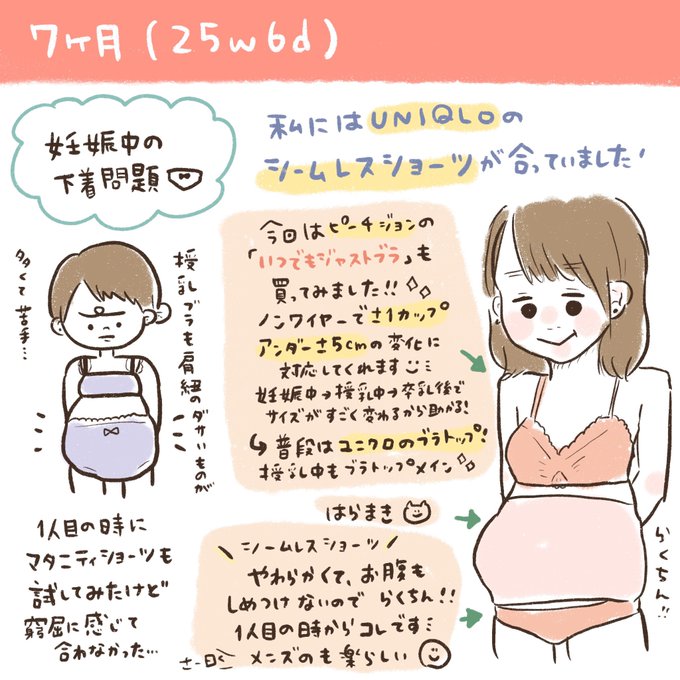 7ヶ月(25w6d)
妊娠中の
下着問題
私にはUNIQLOの
シームレスショーツが合っていました!
授乳ブラも肩紐のダサいものが
多くて苦手…
今回はピーチジョンの
「いつでもジャストブラ」も
買ってみました!!
ノンワイヤーで±1カップ
アンダー±5cmの変化に
対応してくれます
妊娠中→授乳中→卒乳後で
サイズがすごく変わるから助かる!
↳普段はユニクロのブラトップ!
授乳中もブラトップメイン
はらまき
らくちん!!
1人目の時に
マタニティショーツも
試してみたけど
窮屈に感じて
合わなかった…
\シームレスショーツ/
やわらかくて、お腹も
しめつけないので らくちん!!
1人目の時からコレです
メンズのも楽らしい